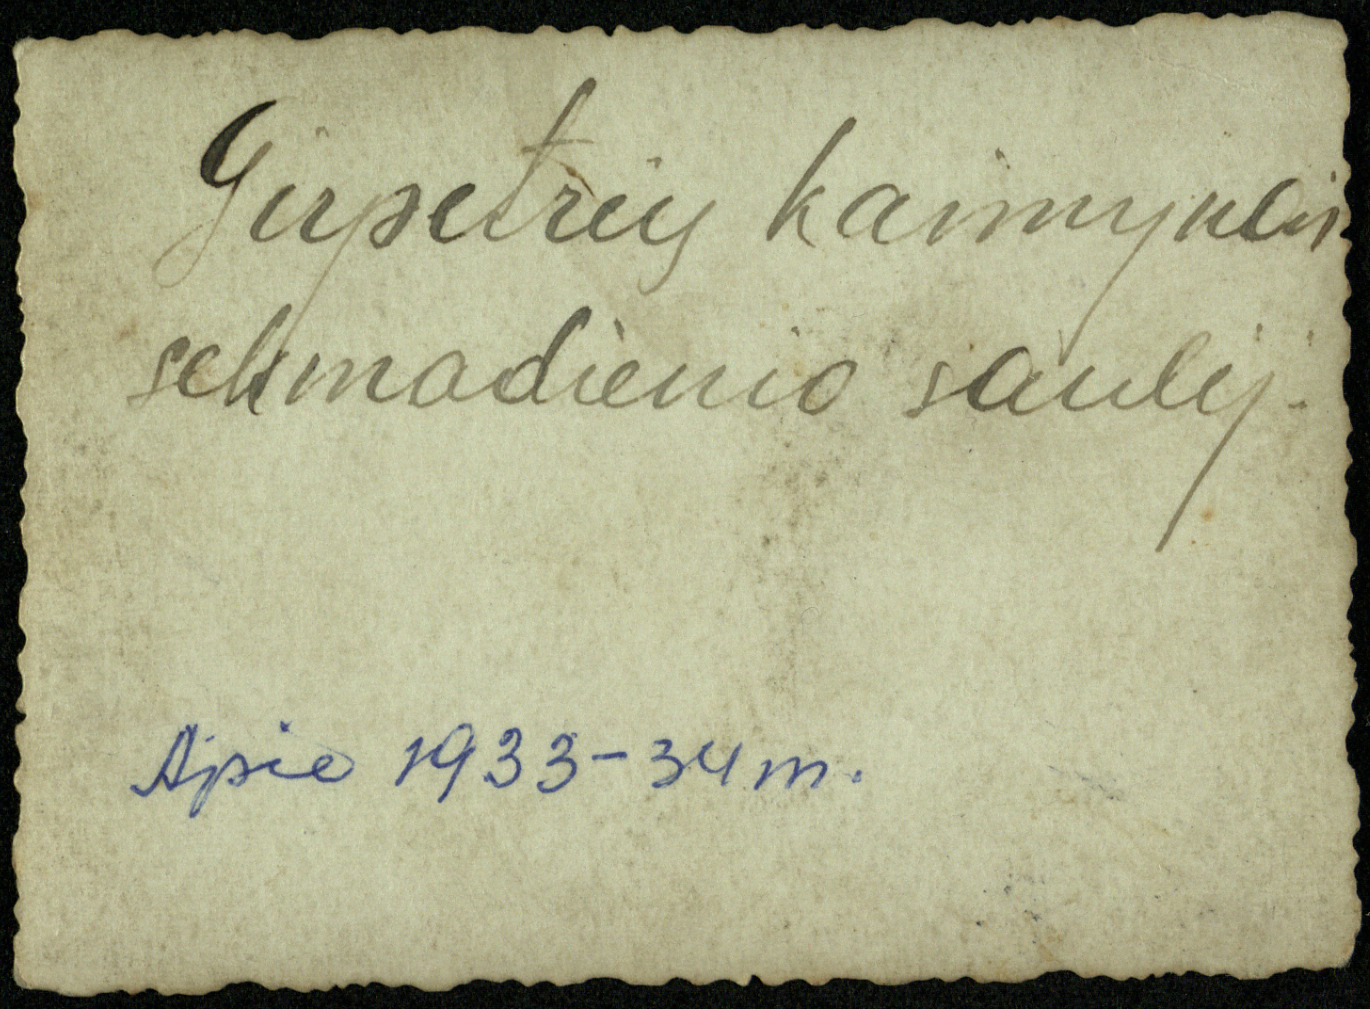 Girpetrių kaimynai
sekmadienio saulėj.
Apie 1933-34 m.